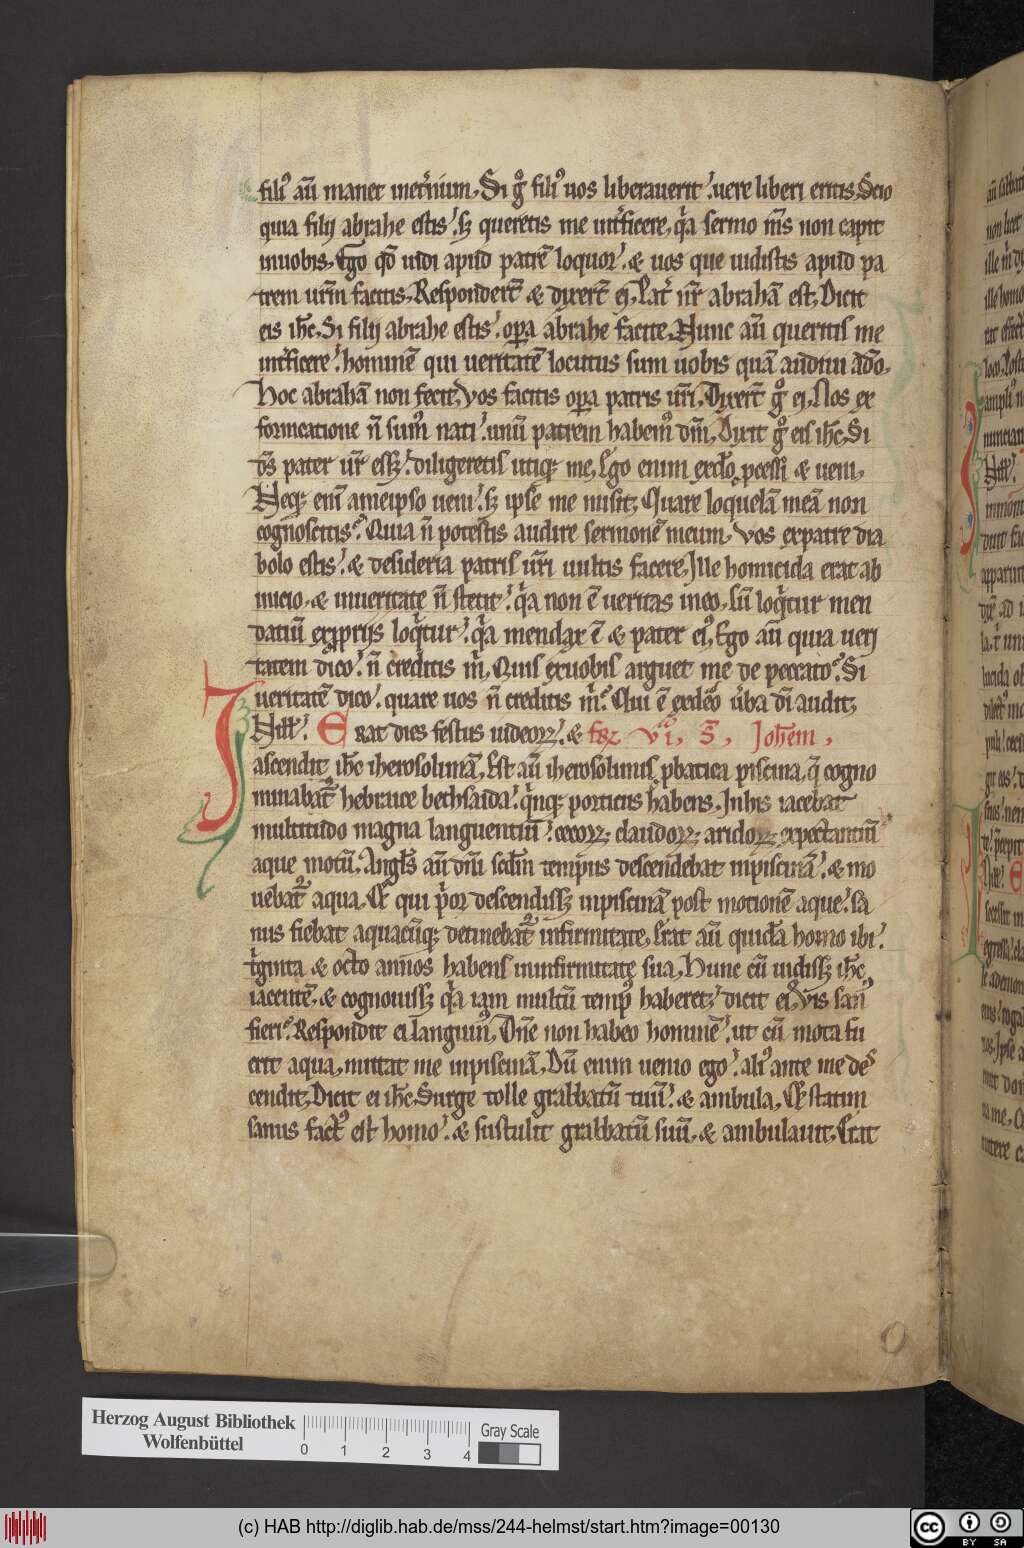 filiꝰ aū manet inet̄num. Si gͦ filiꝰ uos liberauerit. uere liberi eritis. Scio
quia filij abrahe estis. sꝫ queretis me int̄ficere. qꝛa sermo m̄s non capit
inuobis. Ego qd̄ uidi apud patrē loquor. & uos que uidistis apud pa
trem ur̄m facitis. Responder̄t & dixer̄t ei. Pat̄ nr̄ abrahā est. Dicit
eis ih̄c. Si filij abrahe estis. oꝑa abrahe facite. Nunc aū queritis me
int̄ficere. hominē qui ueritatē locutus sum uobis quā audiui ado.
Hoc abrahā non fecit. Vos facitis oꝑa patris ur̄i. Dixer̄t gͦ ei. Nos ex
fornicatione n̄ sumꝰ nati. unū patrem habemꝰ dm̄. Dixit gͦ eis ih̄c. Si
ds̄ pater ur̄ essꝫ. diligeretis utiqꝫ me. Ego enim exdo ꝓcessi & ueni.
Neqꝫ enī ameipso ueni. sꝫ ipse me misit. Quare loquelā meā non
cognoscitis. Quia n̄ potestis audire sermonē meum. Vos expatre dia
bolo estis. & desideria patris ur̄i uultis facere. Ille homicida erat ab
inicio. & inueritate n̄ stetit. qꝛa non ē ueritas ineo. Cū loqꝛtur men
daciū exꝓprijs loqꝛtur. qꝛa mendax ē & pater eiꝰ. Ego aū quia ueri
tatem dico. n̄ creditis m̄. Quis exuobis arguet me de peccato. Si
ueritatē dico. quare uos n̄ creditis m̄. Qui ē exdeo ūba dī audit.
In illꝰ. Erat dies festus iudeoꝝ. & fer VIᵒ. S̄. Joh̄em.
ascendit ih̄c iherosolimā. Est aū iherosolimis ꝓbatica piscina. q̄ cogno
minabat̄ hebraice bethsaida. qͥnqꝫ porticus habens. Inhis iacebat
multitudo magna languentiū. cecoꝝ. claudoꝝ. aridoꝝ. expectantiū
aque motū. Angls̄ aū dn̄i scd̄m tempus descendebat inpiscinā. & mo
uebat̄ aqua. Et qui pͥor descendissꝫ inpiscinā post motionē aque. sa
nus fiebat aquacūqꝫ detinebat̄ infirmitate. Erat aū quidā homo ibi.
tͥginta & octo annos habens ininfirmitate sua. Hunc cū uidissꝫ ih̄c
iacentē. & cognouissꝫ qꝛa iam multū tempꝰ haberet. dicit ei. Vis sanꝰ
fieri. Respondit ei languidꝰ. Dn̄e non habeo hominē. ut cū mota fu
erit aqua. mittat me inpiscinā. Dū enim uenio ego. aliꝰ ante me des
cendit. Dicit ei ih̄c. Surge tolle grabbatū tuū. & ambula. Et statim
sanus factꝰ est homo. & sustulit grabbatū suū. & ambulauit. Erat
Herzog August Bibliothek
Wolfenbüttel
0 1 2 3 4
Gray Scale
(c) HAB http://diglib.hab.de/mss/244-helmst/start.htm?image=00130
cc BY SA